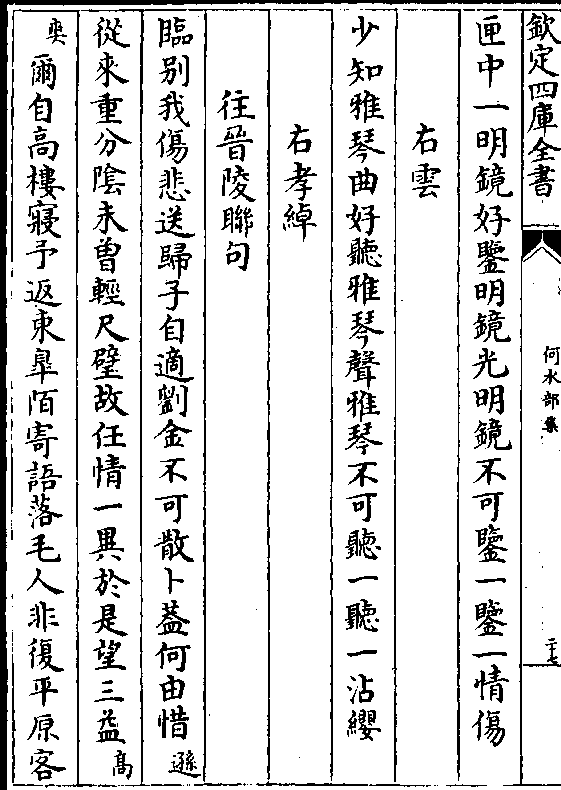 欽定四庫全書
何水部集
二十七
匣中一明鏡好鑒明鏡光明鏡不可鑒一鑒一情傷
右雲
少知雅琴曲好聽雅琴聲雅琴不可聽一聽一沾纓
右孝綽
往晉陵聯句
臨别我傷悲送歸子自適劉金不可散卜葢何由惜遜
從來重分陰未曽輕尺璧故任情一異於是望三益髙
爽爾自高樓寢予返東臯陌寄語落毛人非復平原客